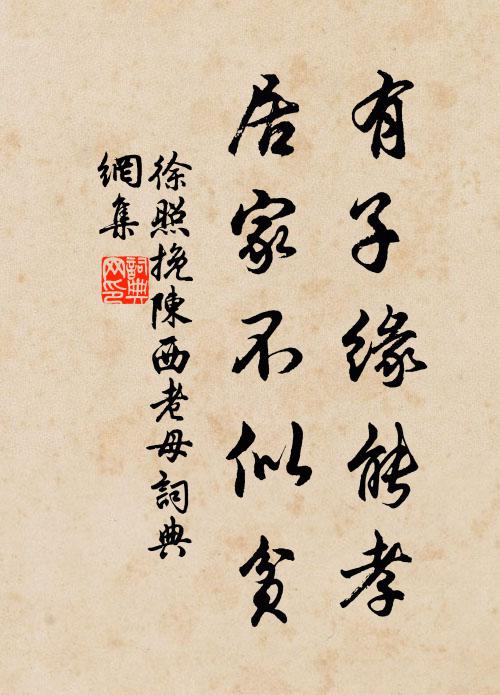 有子緣能孝
居家不似貧
徐照挽陳西老母詞典
網集
詞典網印